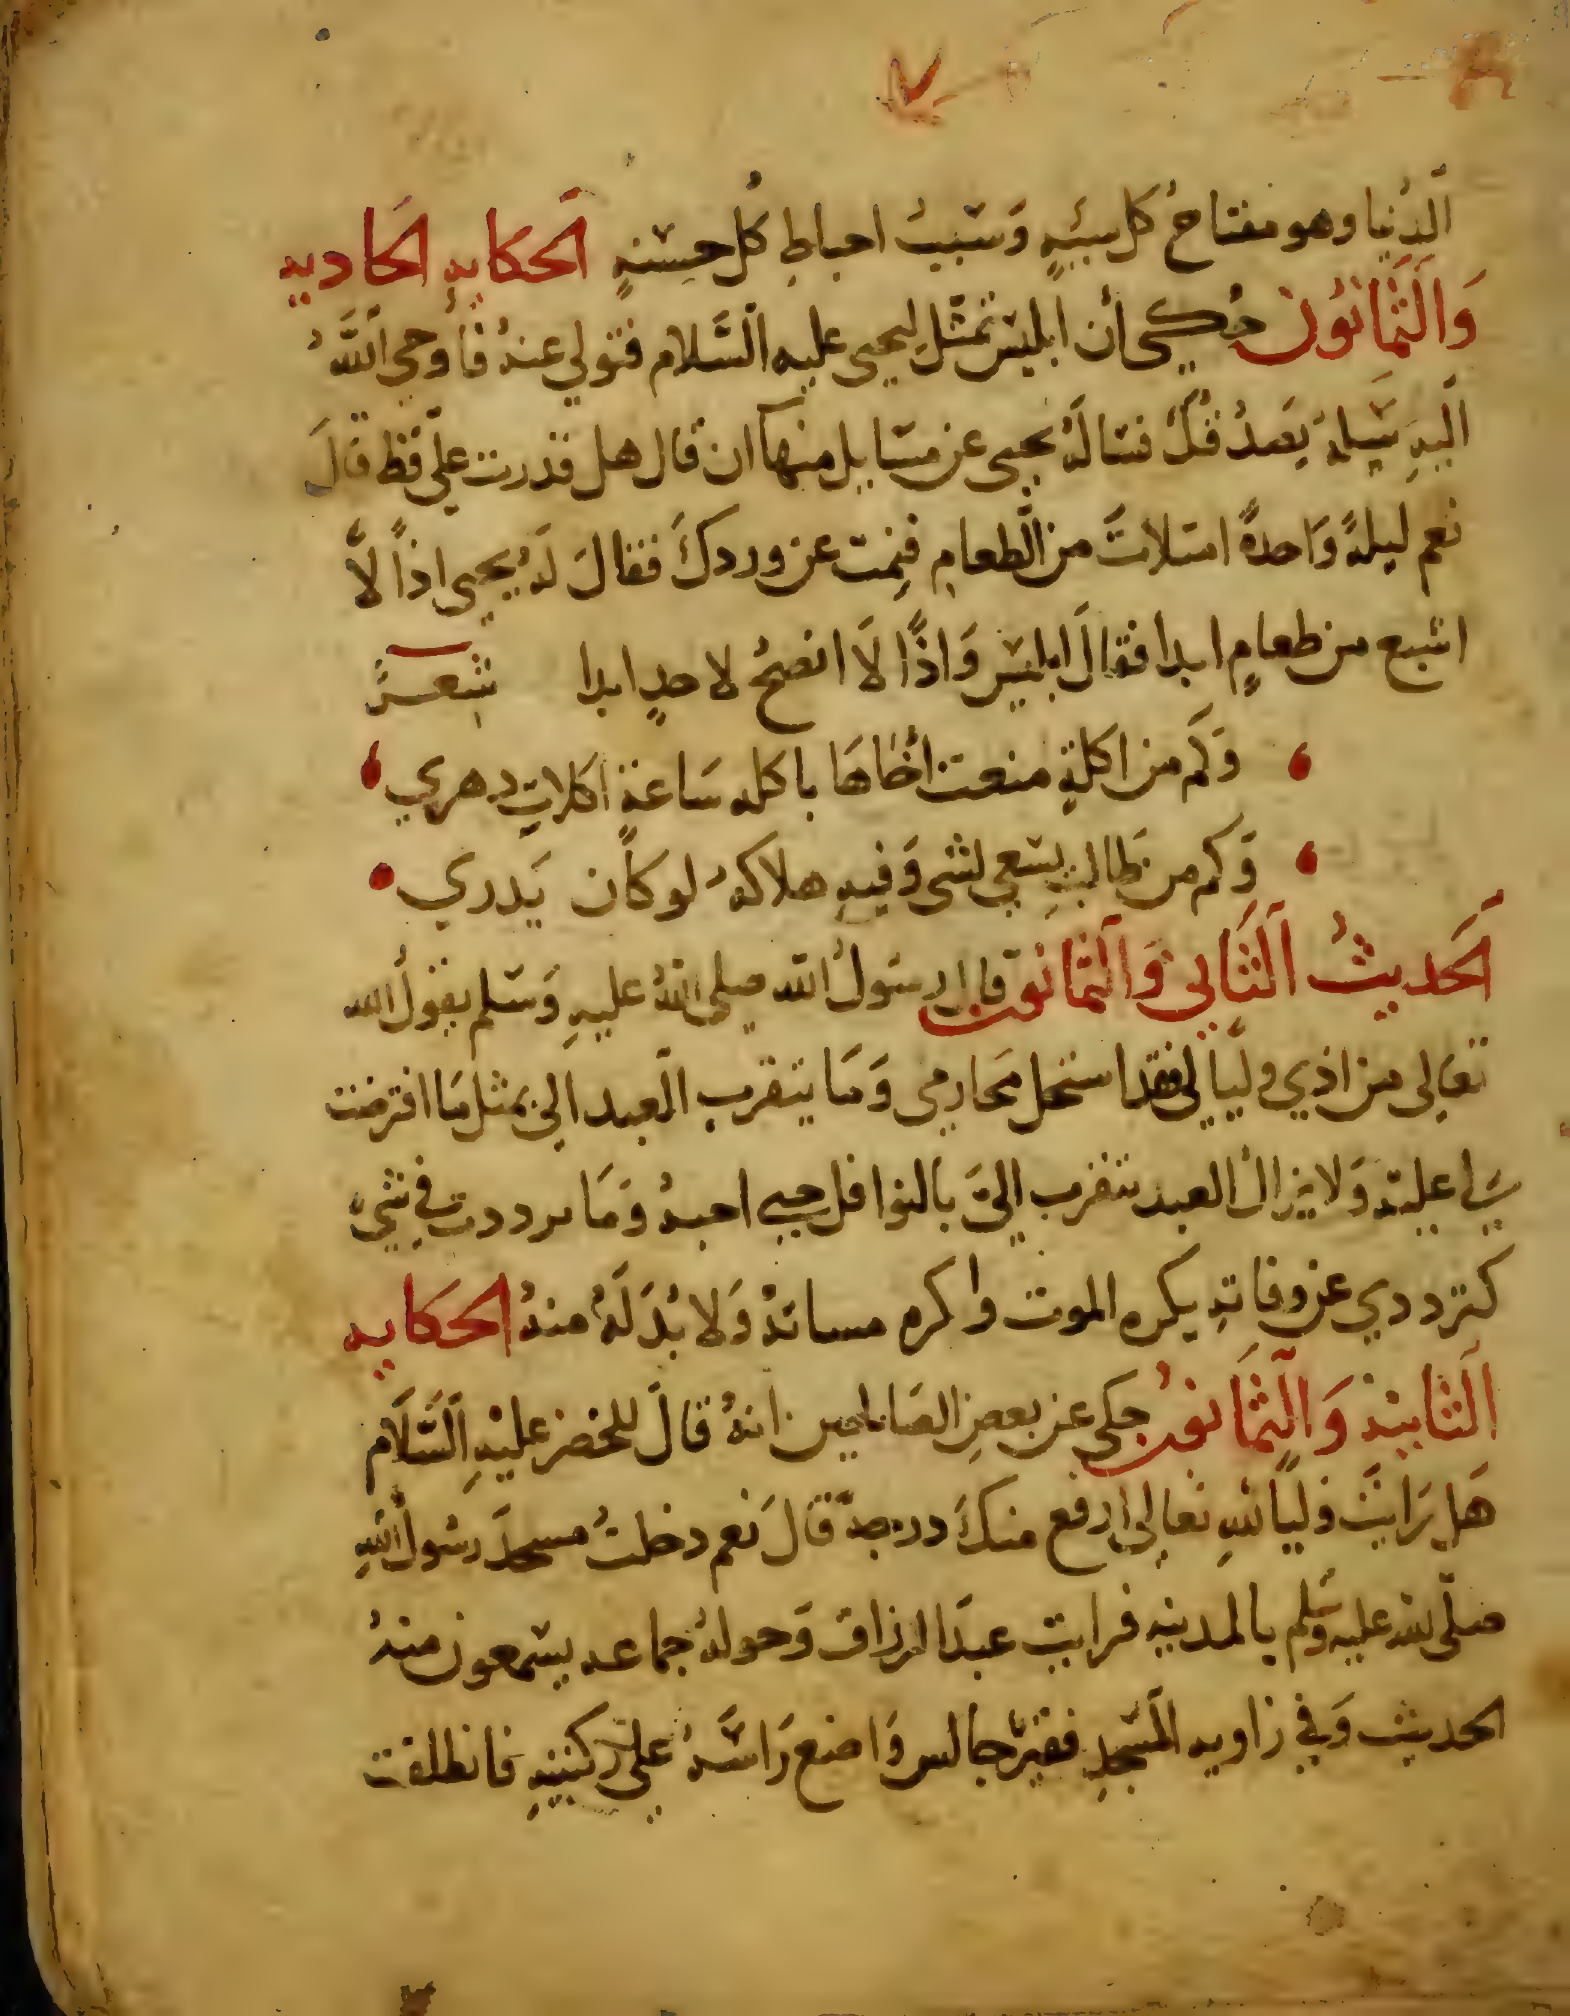 اَلدُنيا وهو مفتاحُ كل سيّهٍ وَسَببُ احباطِ كُل حسنهٍ اَلحكايه اَلحاديه
وَالَثَمانوُن حُكي أن ابليس تمثّلَ ليحيى عليه السَّلام فتولي عنهُ فأوحي اَللَّهُ
اليهِ سَلهُ يَصدُقكَ فسالَهُ يحيى عن مسَايل منها ان قال هل قدرت عليّ قط قالَ
نعم ليلةً وَاحدةً امتلاتَ من الَطعامِ فنِمت عن وردكَ فقالَ لَهُ يحيى اذاً لاَّ
اشبع من طعامٍ ابدا فقالَ ابليس وَاذًا لاَ انصحُ لاحدٍ ابدا شعرٌ
وَكَم من اكلةٍ منعت اخَاهَا باكله سَاعةٍ اَكلاتِ دهري
وَكم من طَالبٍ يسَعي لشى وَفيهِ هلاكهُ لو كاَن يَدري
اَلحديثُ اَلثَاني وَاَلثمَانون قال رسَولُ اللّه صلى اللهُ عليهِ وَسَلم يقولُ الله
تعالى من اذي وليًا لي فقد استحل محَارمي وَمَا يتقرب العبد الىّ بمثل مَا افترضت
عليهِ وَلا يزالُ العبد يتقرب اليّ بالنوافل حتى احبهُ وَمَا ترددت في شيءٍ
كترددي عن وفاتهِ يكره الموت واكره مساتهُ وَلا بُدَ لَهُ منهُ الحكَايه
اَلثانيه وَاَلثمَانونُ حكى عن بعضِ الصَالحين انهُ قالَ للخضر عليْهِ اَلسَّلاَم
هَل رَايتَ وَليًا للهِ تعَالى ارفع منكَ درجةً قالَ نعم دخلتُ مسجدَ رسُول اللهِ
صلّى الله عليه وسَلم بالمدينه فرايت عبدَ الرزاق وَحولهُ جماعه يسَمعون منهُ
الحديث وَفي زاويه المَسجدِ فقيرٌ جالس وَاضع رَاسَهُ على ركبتيهِ فانطلقت